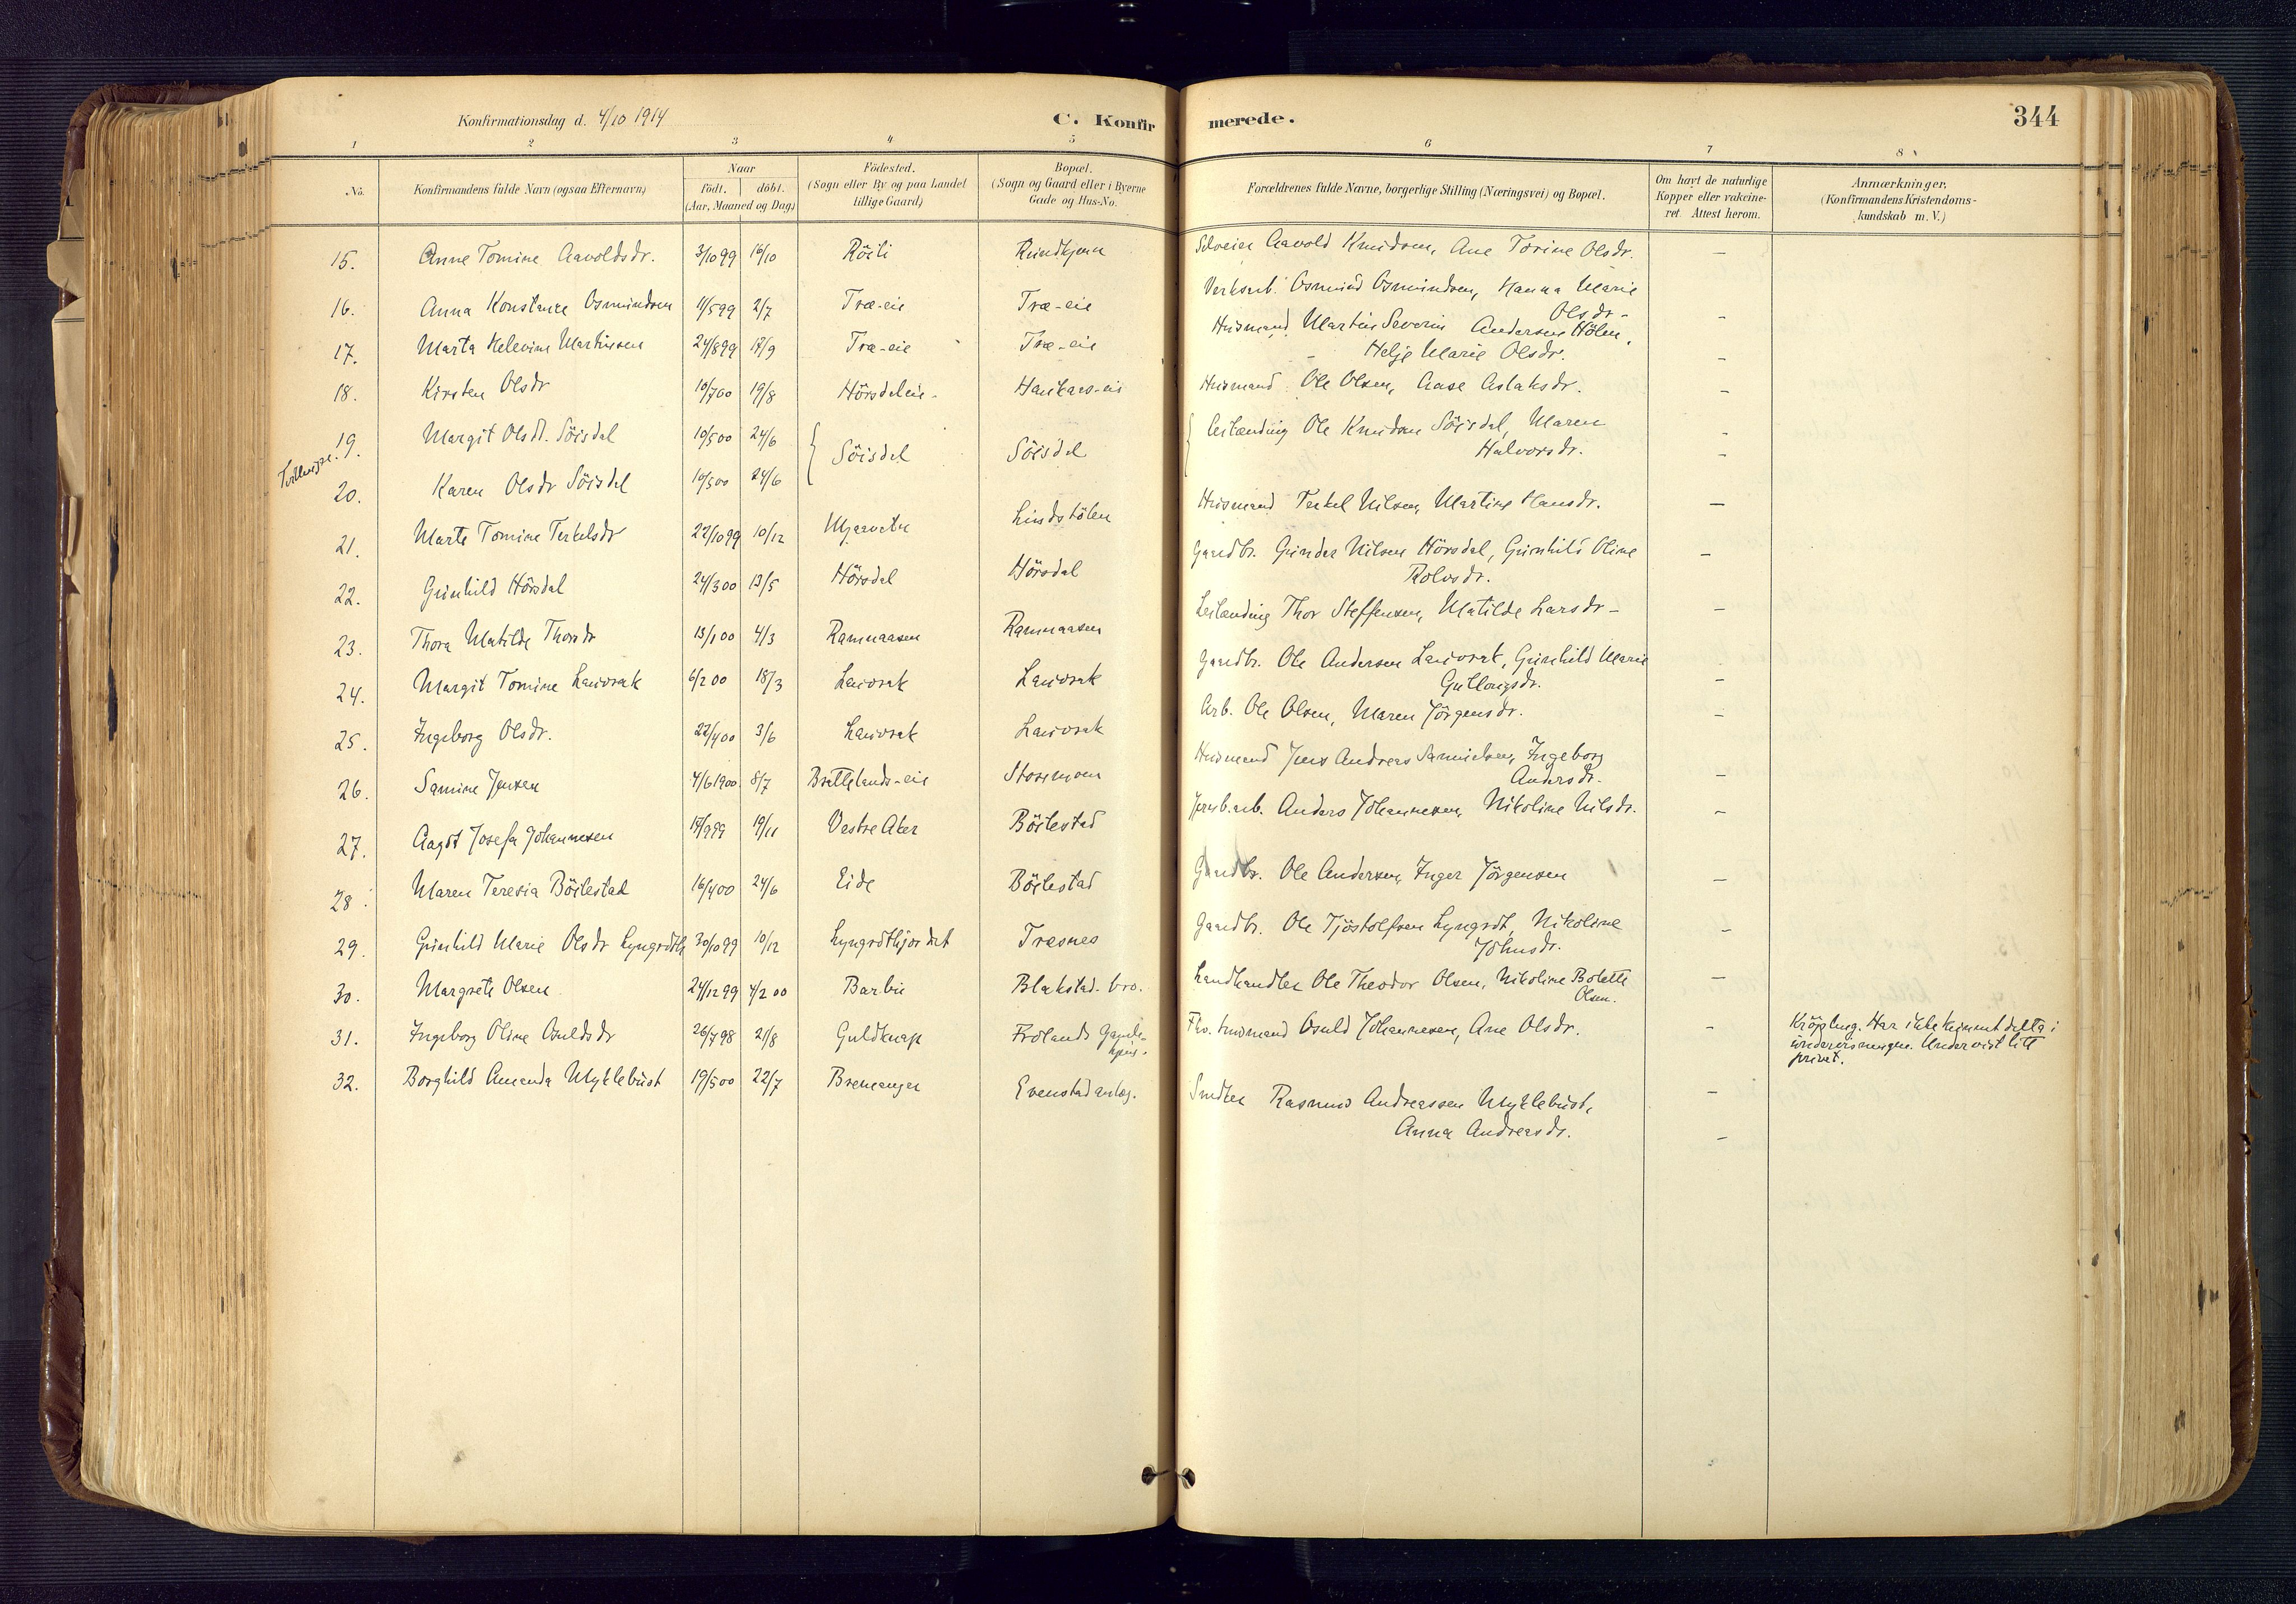 Konfirmationsdag d. 4/10 1914 C. Konfirmerede. 344
1 2 3 4 5 6 7 8
No. Konfirmandens fulde Navn (ogsaa Efternavn) Naar födt. döbt. (Aar, Maaned og Dag) Födested. (Sogn eller By og paa Landet tillige Gaard) Bopæl. (Sogn og Gaard eller i Byerne Gade og Hus-No. Forældrenes fulde Navne, borgerlige Stilling (Næringsvei) og Bopæl. Om havt de naturlige Kopper eller vakcineret. Attest herom. Anmærkninger. (Konfirmandens Kristendomskundskab m. V.)
15. Anne Tomine Aavoldsdr. 3/10 99 16/10 Röili Rundkjern Selveier Aavold Knudsen, Ane Torine Olsdr. —
16. Anna Konstanse Osmundsen 11/5 99 2/7 Træ-eie Træ-eie Verksarb. Osmund Osmundsen, Hanna Marie
Olsdr - —
17. Marta Helevine Martinsen 24/8 99 17/9 Træ-eie Træ-eie Husmand Martin Severin Andersen Hölen,
Helje Marie Olsdr. —
18. Kirsten Olsdr 10/7 00 19/8 Hörsdaleie - Haukaas-eie Husmand Ole Olsen, Aase Aslaksdr. —
19. Margit Olsdr. Söisdal 10/5 00 24/6 Söisdal Söisdal Leilænding Ole Knudsen Söisdal, Maren
Halvorsdr. —
Tvillinger.
20. Karen Olsdr Söisdal 10/5 00 24/6 —
21. Marte Tomine Terkelsdr 22/10 99 10/12 Mjaavatn Lindstölen Husmand Terkel Nilsen, Martine Hansdr. —
22. Gunhild Hörsdal 24/3 00 13/5 Hörsdal Hörsdal Gaardbr. Gunder Nilsen Hörsdal, Gunhild Oline
Rolvsdr. —
23. Thora Matilde Thorsdr 13/1 00 4/3 Ramnaasen Ramnaasen Leilænding Thor Steffensen, Matilde Larsdr - —
24. Margit Tomine Lauvrak 6/2 00 18/3 Lauvrak Lauvrak Gaardbr. Ole Andersen Lauvrak, Gunhild Marie
Gutlougsdr. —
25. Ingeborg Olsdr. 22/4 00 3/6 Lauvrak Lauvrak Arb. Ole Olsen, Maren Jörgensdr. —
26. Samine Jensen 4/6 1900 8/7 Brattelands-eie Storemoen Husmand Jens Andreas Samuelsen, Ingeborg
Andersdr. —
27. Aagot Josefa Johannesen 17/9 99 19/11 Vestre Aker Böilestad Jernb.arb. Anders Johannesen, Nikoline Nilsdr. —
28. Maren Teresia Böilestad 16/4 00 24/6 Eide Böilestad Gaardbr. Ole Andersen, Inger Jörgensen —
29. Gunhild Marie Olsdr Lyngroth 30/10 99 10/12 Lyngrothjordet Tresnes Gaardbr. Ole Tjöstolfsen Lyngrot, Nikoline
Johnsdr. —
30. Margrete Olsen 24/12 99 4/2 00 Barbu Blakstad-bro. Landhandler Ole Theodor Olsen, Nikoline Bolette
Olsen. —
31. Ingeborg Oline Osuldsdr 26/7 98 21/8 Guldknap Frolands Gamle-
hjem. Fhv. husmand Osuld Johannesen, Ane Olsdr. — Kröpling. Har ikke kunnet delta i
undervisningen. Undervist litt
privat.
32. Borghild Amanda Myklebust 19/5 00 22/7 Bremanger Evenstad anlæg. Smelter Rasmus Andreassen Myklebust, —
Anna Andreasdr. —